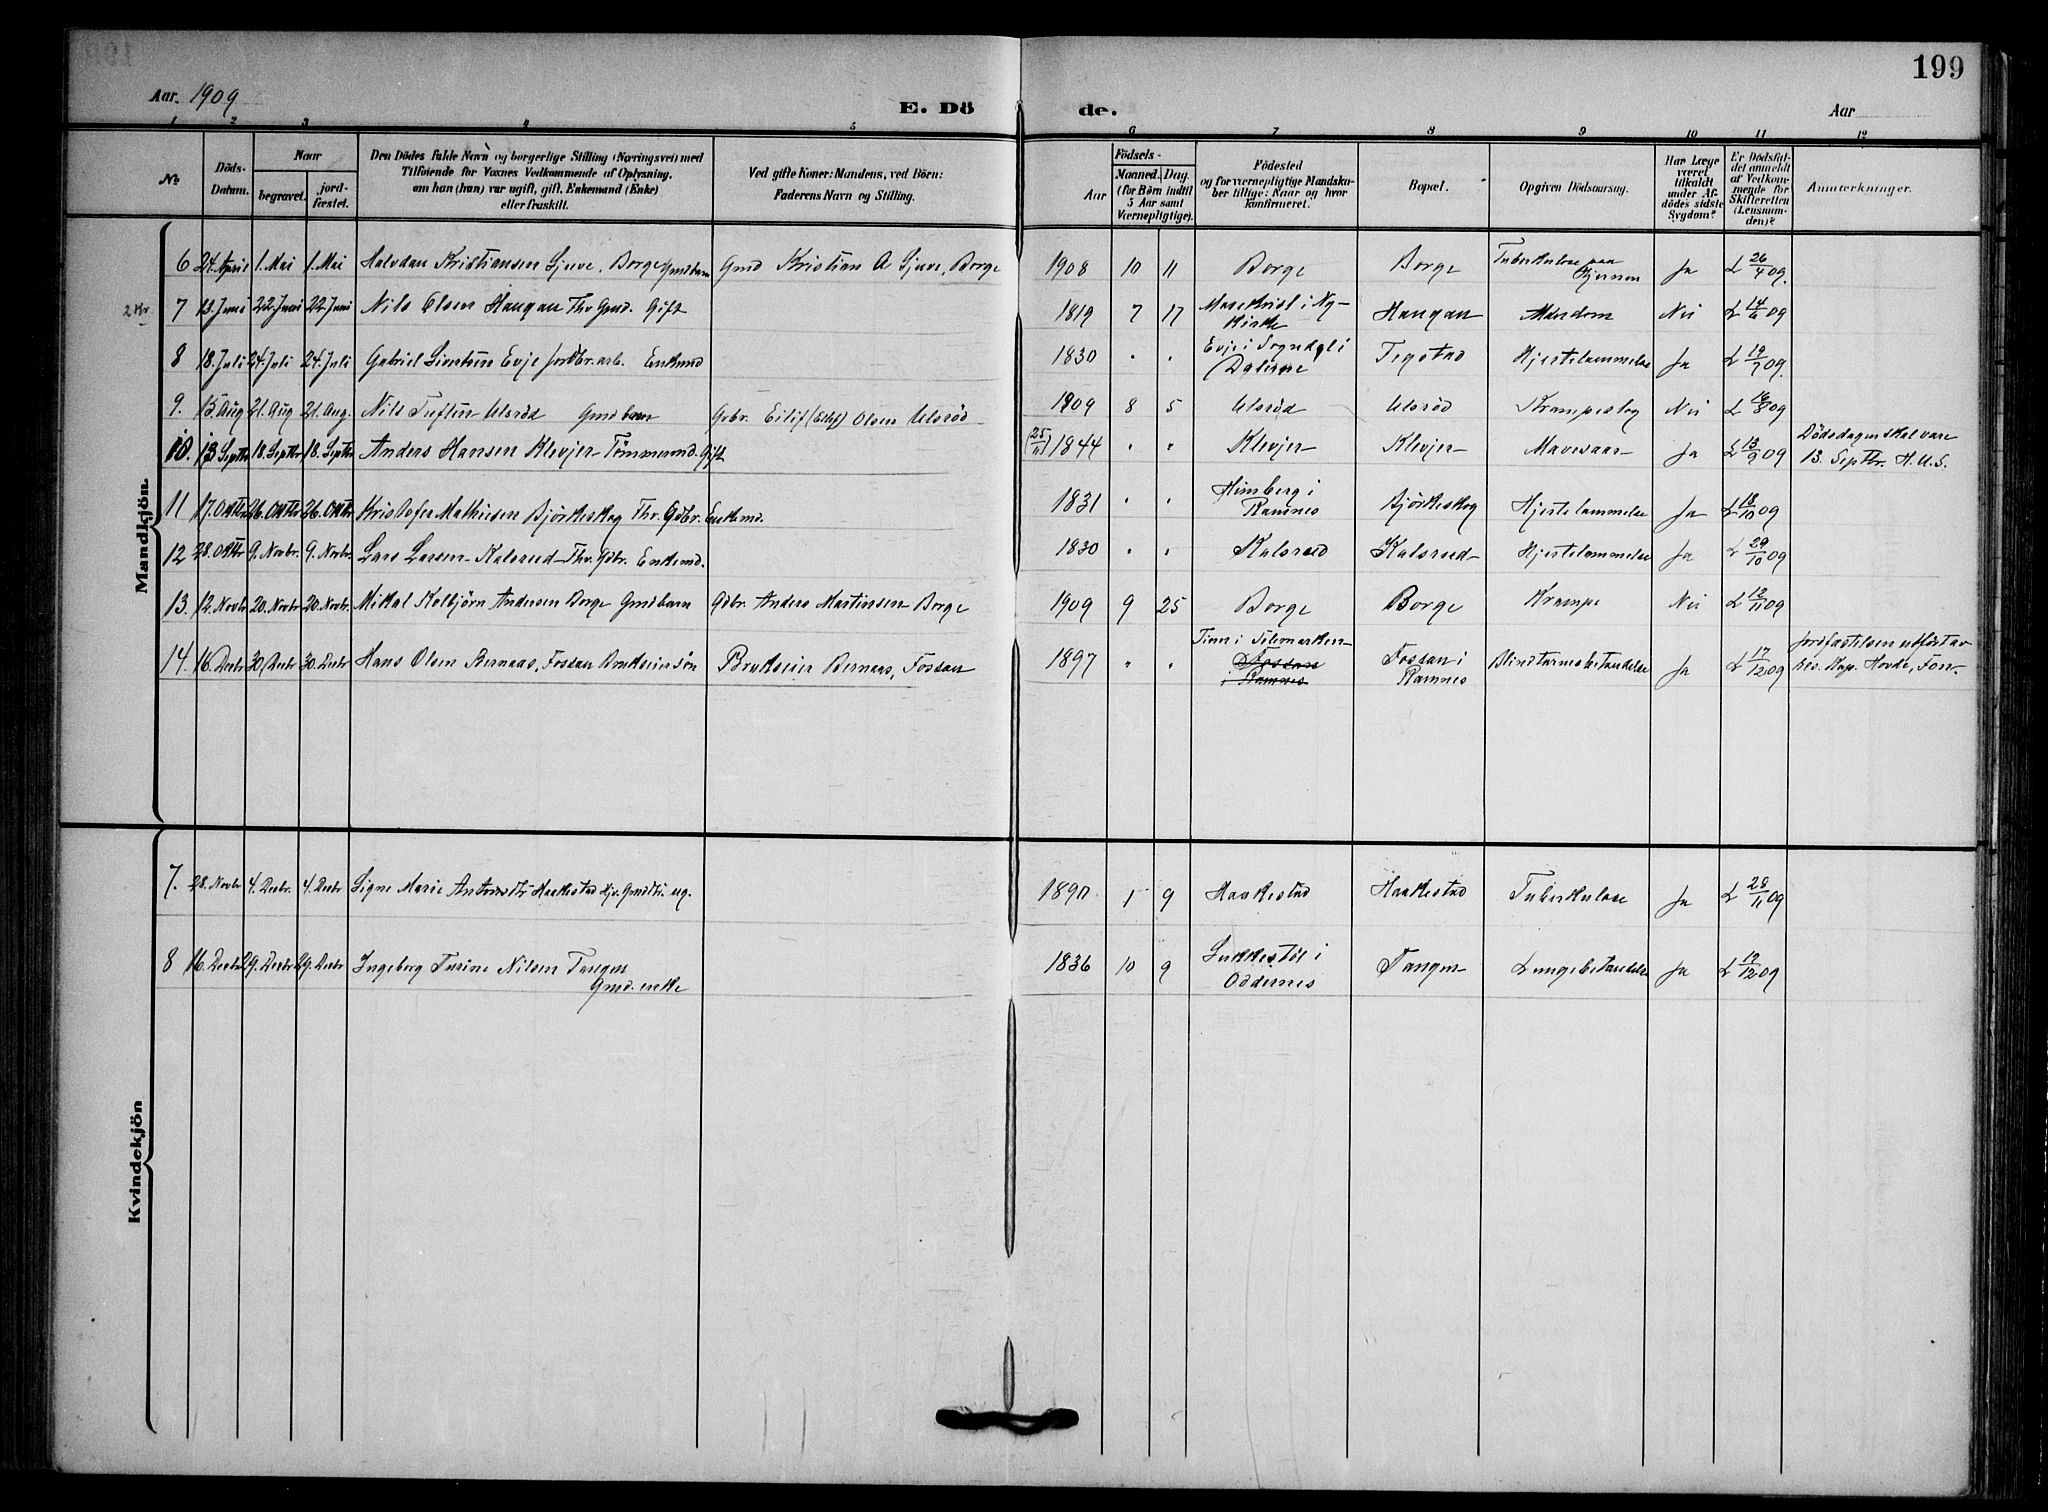 199
Aar. 1909
E. Dö de.
Aar
1 2 3 4 5 6 7 8 9 10 11 12
No.
Döds-Datum.
Naar
begravet.
jord-fæstet.
Den Dödes fulde Navn og borgerlige Stilling (Næringsvei) med
Tilföiende for Voxnes Vedkommende af Oplysning,
om han (hun) var ugift, gift, Enkemand (Enke)
eller fraskilt.
Ved gifte Koner: Mandens, ved Börn:
Faderens Navn og Stilling.
Födsels-
Aar
Maaned. Dag.
(for Börn indtil
5 Aar samt
Værnepligtige).
Födested
og for værnepligtige Mandska-
ber tillige: Naar og hvor
konfirmeret.
Bopæl.
Opgiven Dödsaarsag.
Har Læge
været
tilkaldt
under Af-
dödes sidste
Sygdom?
Er Dödsfal-
det anmeldt
af Vedkom-
mende for
Skifteretten
(Lensman-
den)?
Anmærkninger.
Mandkjön.
6 24. April 1. Mai 1. Mai Halvdan Kristiansen Ljuve. Borge Gmdbarn Gmd Kristian A Ljuve, Borge 1908 10 11 Borge Borge Tuberkulose paa Hjernen Ja L 26/4 09.
2 Kr.
7 13. Juni 22. Juni 22. Juni Nils Olsen Haugan Fhv Gmd. Gift 1819 7 17 i Ny-Kirke Haugan Alderdom Nei L 14/6 09
8 18. Juli 24. Juli 24. Juli Gabriel Evje Jordbr. arb. Enkmd 1830 " " Evje i Sogndal i Dalerne Tegstad Hjertelammelse Ja L 19/7 09.
9. 15 Aug 21. Aug 21. Aug. Nils Ulsröd Gmdbarn Gbr. Eilif (Ellef) Olsen Ulsröd 1909 8 5 Ulsröd Ulsröd Krampeslag Nei L 16/8 09
10. 13 Septbr 18. Septbr 18. Septbr Anders Hansen Klevjer Tömmermd. Gift (25/11) 1844 " " Klevjer Klevjer Mavesaar Ja L 13/9 09 Dödsdagen skal være 13. Septbr. H. U. S.
11 17. Oktbr 26. Oktbr 26. Oktbr Kristofer Mathiesen Bjørkeskog Fhv. Gdbr. Enkemd. 1831 " " Himberg i Ramnes Bjørkeskog Hjertelammelse Ja L 18/10 09
12 28. Oktbr 9. Novbr. 9. Novbr. Lars Larsen Kalsrud Fhv. Gdbr. Enkemd. 1830 " " Kalsrud Kalsrud Hjertelammelse Ja L 29/10 09
13. 12. Novbr 20. Novbr 20. Novbr. Mikal Kolbjörn Andersen Borge Gmdbarn Gdbr. Anders Martinsen Borge 1909 9 25 Borge Borge Krampe Nei L 12/11 09
14. 16. Decbr 30. Decbr 30. Decbr Hans Olsen Bernaas, Fossan Brukseiersön Brukseier Bernaas, Fossan 1897 " " Tinn i Telemarken Fossan i Ramnes Fossan i Ramnes Blindtarmsbetændelse Ja L 17/12 09 Jordfæstelsen utfört av Res. Kap. Hovde, Fon
Kvindekjön
7. 28. Novbr 4. Decbr. 4. Decbr Signe Marie Antonsdtr Haakestad ug. 1890 1 9 Haakestad Haakestad Tuberkulose Ja L 29/11 09
8 16. Decbr 29. Decbr 29. Decbr Ingeborg Turine Nilsen Tangen Gmd. enke 1836 10 9 i Oddernes Tangen Lungebetændelse Ja L 19/12 09